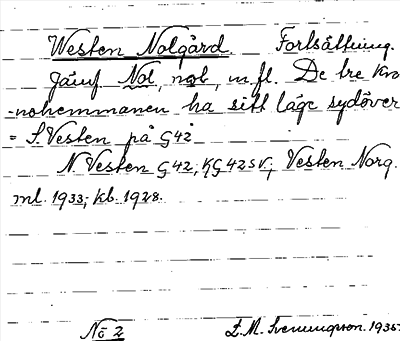 Westen Nolgård. Fortsättning.
Jämf Nol, nol, m.fl. De tre kro
-nohemmanen ha sitt läge sydöver
= S. Vesten på G42
N. Vesten G42, KG42SV, Vesten Norg.
ml. 1933; kb. 1928.
No 2 E. M. Svenungsson. 1935